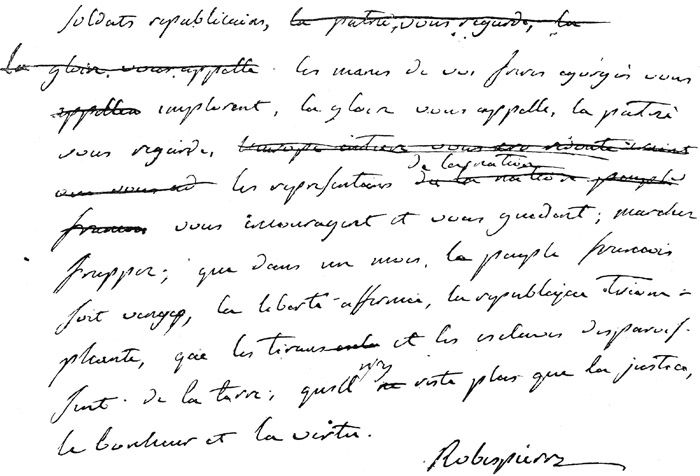 Soldats republicains, la patrie vous regarde, la
la gloire vous appelle. les manes de vos freres egorgés vous
appellen implorent, la gloire vous appelle, la patrie
vous regarde, l'europe entiere vous
de la nation
les representans de la nation peuple
francois vous encouragent et vous guident; marchez
frappez; que dans un mois, le peuple francois
soit vengé, la liberté affermie, la republique triom=
phante, que les tirans et les esclaves disparois-
sent de la terre; qu'il n'y
reste plus que la justice,
le bonheur et la vertu.
Robespierre